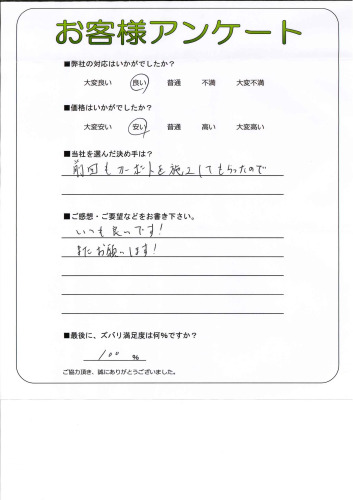 お客様アンケート
■弊社の対応はいかがでしたか？
大変良い 良い 普通 不満 大変不満
■価格はいかがでしたか？
大変安い 安い 普通 高い 大変高い
■当社を選んだ決め手は？
前回もカーポートを施工してもらったので
■ご感想・ご要望などをお書き下さい。
いつも良いです！
またお願いします！
■最後に、ズバリ満足度は何%ですか？
100 %
ご協力頂き、誠にありがとうございました。